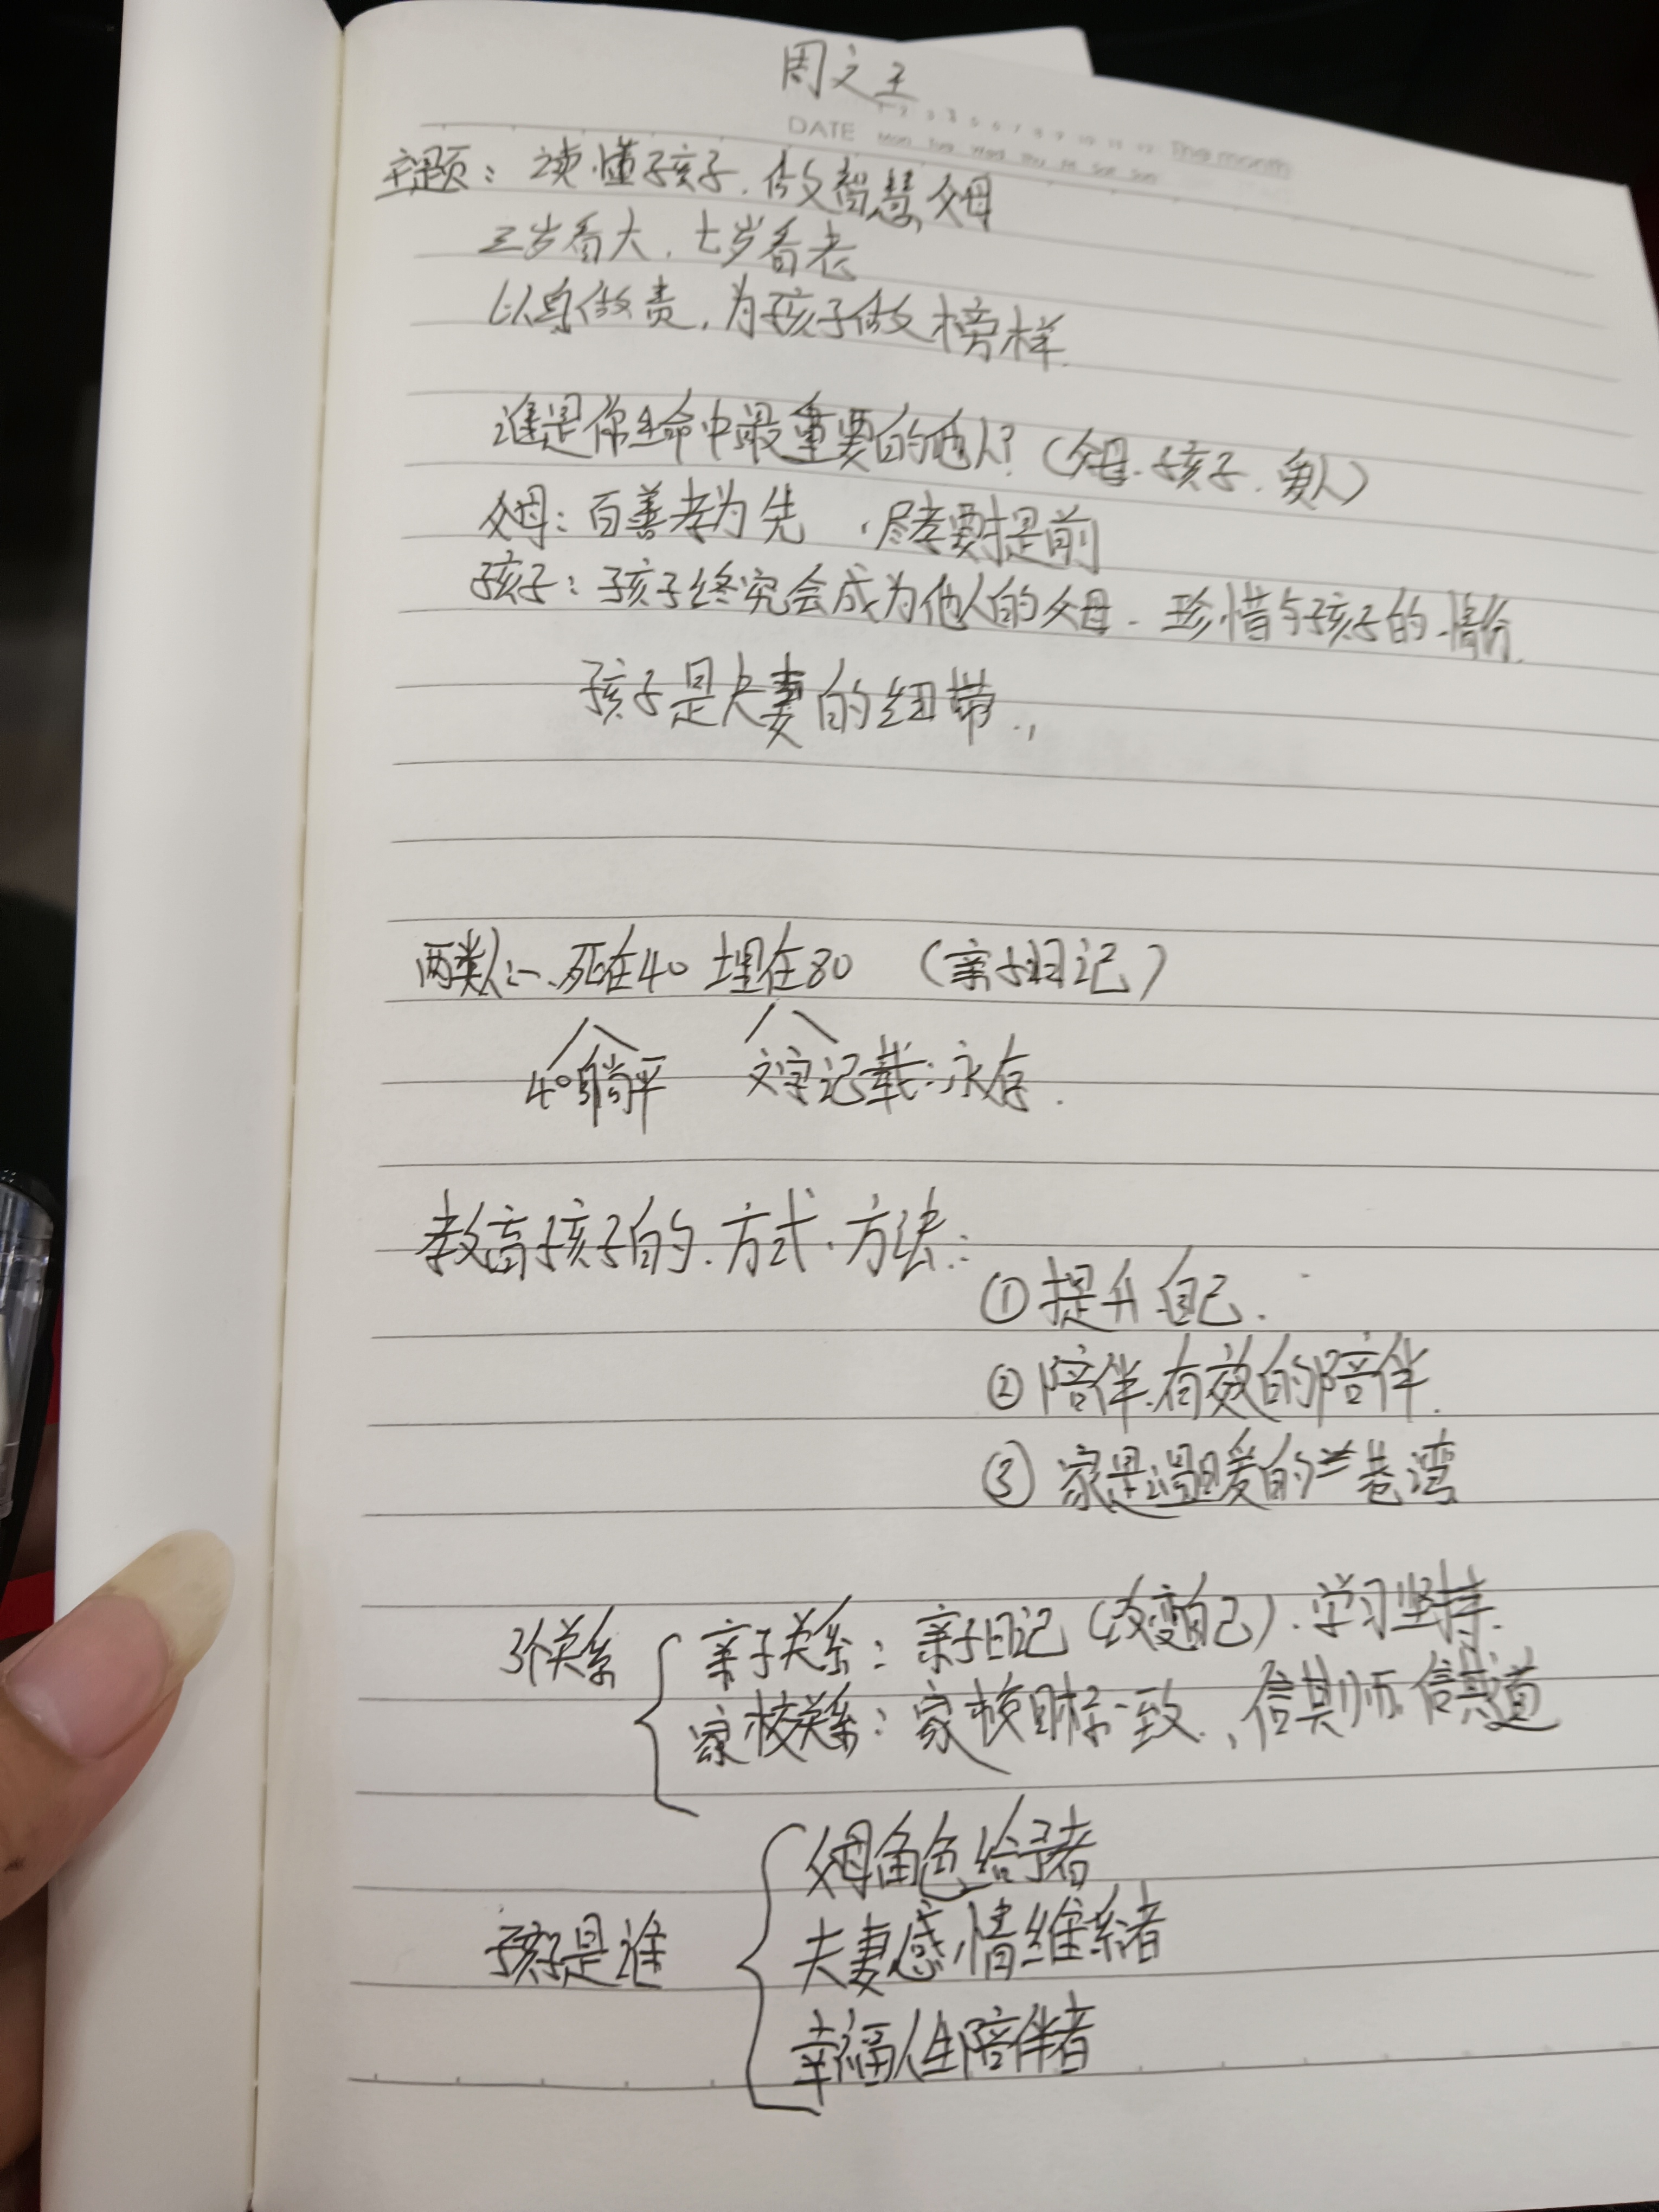 周文王
DATE Mon Tue Wed Thu Fri Sat Sun The month
主题：读懂孩子.做智慧父母
三岁看大.七岁看老
以身做责,为孩子做榜样.
谁是你生命中最重要的他人?(父母.孩子.爱人)
父母：百善孝为先,尽孝要提前
孩子：孩子终究会成为他人的父母.珍惜与孩子的情分.
孩子是夫妻的纽带.,
两类人:一、死在40 埋在80 (亲子日记)
40躺平 文字记载:永存.
教高孩子的.方式.方法:
①提升自己.
②陪伴.有效的陪伴.
③家是温暖的 巷湾
3个关系
亲子关系：亲子日记(改变自己).学习坚持.
家校关系：家校目标一致.,信其师信其道
孩子是谁
父母角色给予者
夫妻感情维系者
幸福人生陪伴者